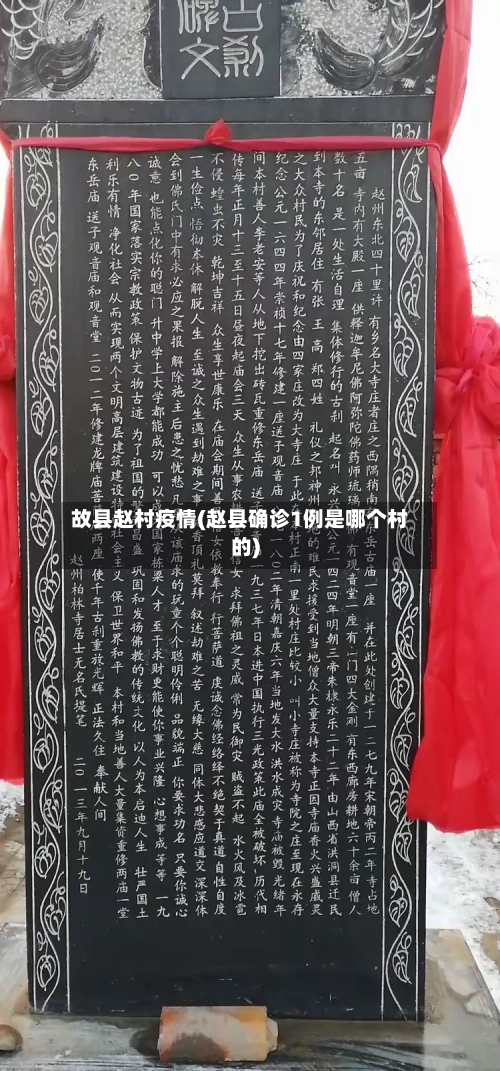 古刹
碑文
赵州东北四十里许 有乡名大寺庄者庄之西隅稍南 东岳古庙一座 并在此处创建于一二七九年宋朝帝丙二年寺占地
五亩 寺内有大殿一座 供释迦牟尼佛阿弥陀佛药师琉璃 佛 有观音堂一座 有二门四大金刚 有东西廊房耕地六十余亩 僧人
数十名 是一处生活自理 集体修行的古刹 起名叫 永兴 公元一四二四年明朝三帝朱棣永乐二十二年 由山西省洪洞县迁民
到本寺的东邻居住 有张 王 高 郑四姓 礼仪之邦神州 地的难民求援受到当地僧众大量支持 本寺正因寺庙香火兴盛威灵
之大众村民为了庆祝和纪念由四家庄改为大寺庄 于此 村正南一里处村庄比较小 叫小寺庄被称为寺院之庄至现在永存
纪念 公元一六四四年崇祯十七年修建一座送子观音庙 一八〇二年清朝嘉庆六年当地发大水 洪水成灾 寺庙被毁 光绪年
间本村善人李老安等人从地下挖出砖瓦重修东岳庙 送子 一九三七年日本进中国执行三光政策此庙全被破坏 历代相
传每年正月十三至十五日昼夜起庙会三天 众生从事农耕 信女 求拜佛祖之灵威 常为民御灾 贼盗不起 水火风及冰雹
不侵 蝗虫不灾 乾坤吉祥 众生享世康乐 在庙会期间善 女依教奉行 行菩萨道 虔诚念佛经络绎不绝契于真道 自性自度
一生俭点 悟彻本体 解脱人生 至诚之众生遇到劫难之事 香顶礼莫拜 叙述劫难之苦 无缘大慈 同体大悲感应道交 深深体
会到佛氏门中有求必应之果报 解除施主后患之忧愁 凡 从该庙求的玩童个个聪明伶俐 品貌端正 你要求功名 只要你诚心
诚意 也能点化你的聪门 升中学上大学都能成功 可以 国家栋梁人才 至于求财更能使你事业兴隆 心想事成等等 一九
八〇年国家落实宗教政策 保护文物古迹 为了祖国的 昌盛 巩固和发扬佛教的传统文化 以人为本启迪人生 壮严国土
利乐有情 净化社会 从而实现两个文明高层建筑建设特 社会主义 保卫世界和平 本村和当地善人大量集资重修两庙一堂
东岳庙 送子观音庙和观音堂 二〇一二年修建龙牌庙菩 两座 使千年古刹重放光辉 正法久住 奉献人间
赵州柏林寺居士无名氏提笔 二〇一三年九月十九日
故县赵村疫情(赵县确诊1例是哪个村
的)